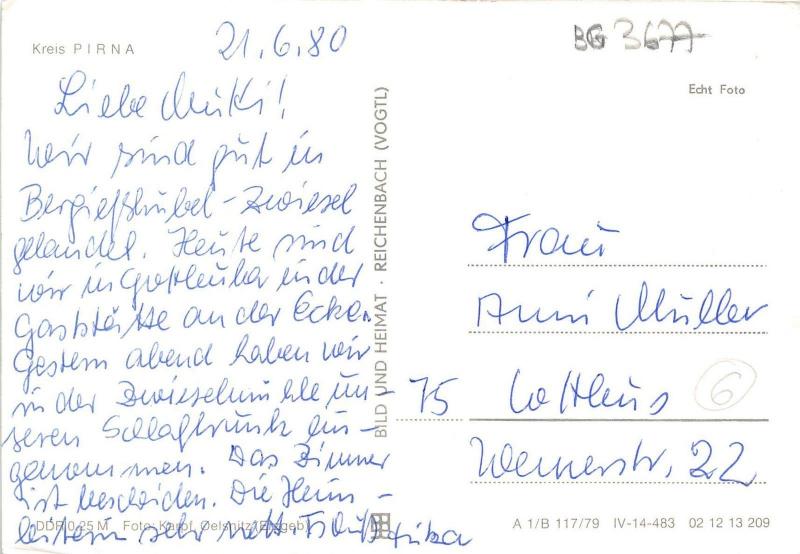 Kreis PIRNA
21.6.80
Liebe Muki!
Wir sind gut in
Bergießhübel-Zwiesel
gelandet. Heute sind
wir in Gottleuba in der
Gaststätte an der Ecke.
Gestern abend haben wir
in der Zwieselmühle un-
seren Schlaftrunk ein-
genommen. Das Zimmer
ist bescheiden. Die Heim-
leiterin sehr nett.
DDR 0,25 M Foto: Karpf, Oelsnitz (Erzgeb.)
BILD UND HEIMAT · REICHENBACH (VOGTL)
BG 3677
Echt Foto
Frau
Anni Müller
75 Cottbus 6
Wernerstr. 22
A 1/B 117/79 IV-14-483 02 12 13 209